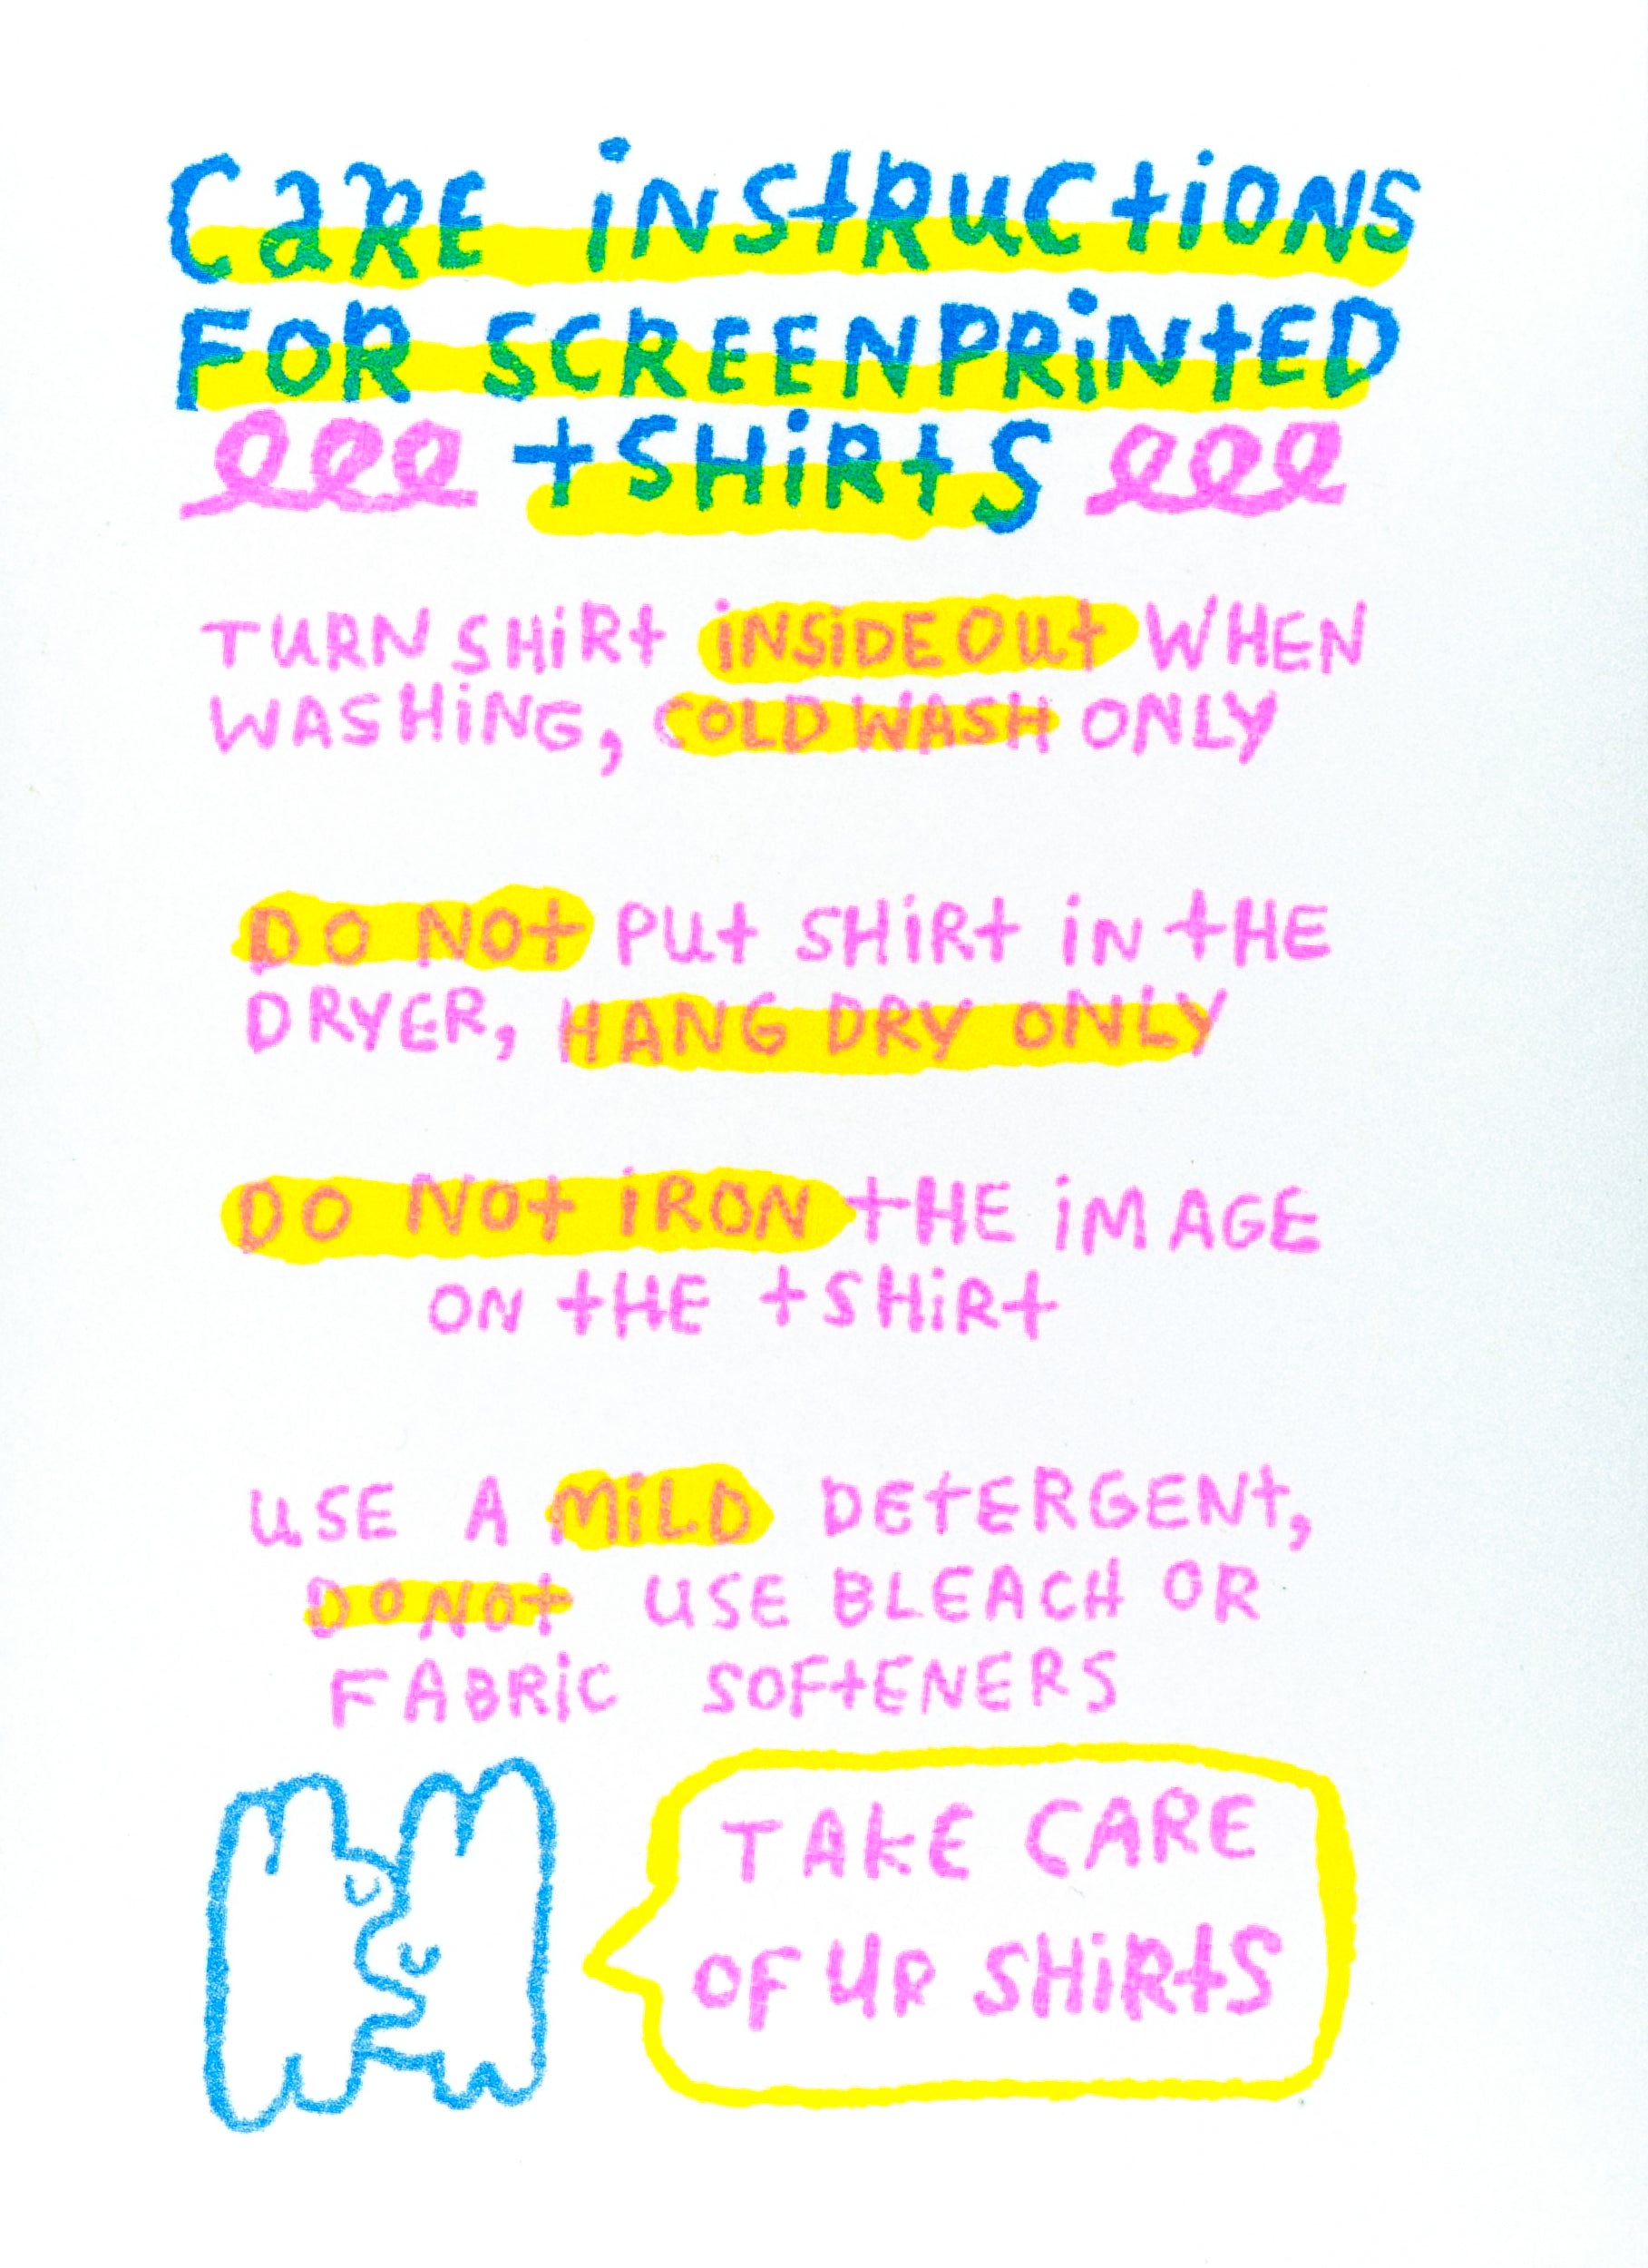 CaRE iNStRUCtiONS
FOR SCREENPRiNtED
tSHiRtS
TURN SHiRt iNSiDE OUt WHEN
WASHiNG, COLD WASH ONLY
DO NOt PUt SHiRt iN tHE
DRYER, HANG DRY ONLY
DO NOt iRON tHE iMAGE
ON tHE tSHiRt
USE A MiLD DEtERGENt,
DO NOt USE BLEACH OR
FABRiC SOFtENERS
TAKE CARE
OF UR SHiRtS